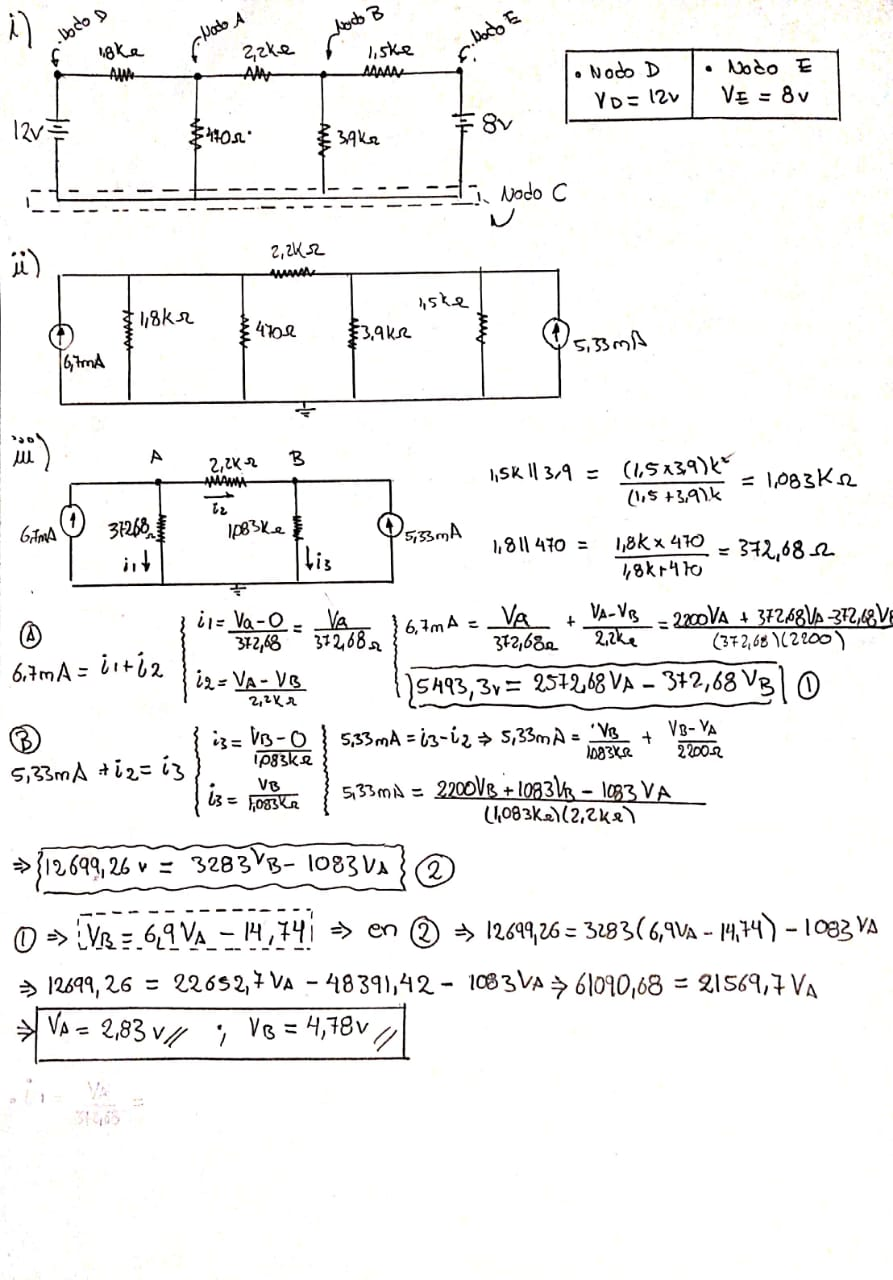 i)
Nodo D
Nodo A
Nodo B
Nodo E
1,8KΩ
2,2KΩ
1,5KΩ
12v
470Ω
3,9KΩ
8v
Nodo C
• Nodo D
VD = 12v
• Nodo E
VE = 8v
ii)
2,2KΩ
6,7mA
1,8KΩ
470Ω
3,9KΩ
1,5KΩ
5,33mA
iii)
A
2,2KΩ
B
i2
6,7mA
372,68Ω
i1↓
1,083KΩ
↓i3
5,33mA
1,5K || 3,9 = (1,5 x 3,9)K² / (1,5 + 3,9)K = 1,083KΩ
1,8 || 470 = 1,8K x 470 / 1,8K + 470 = 372,68Ω
Ⓐ
6,7mA = i1 + i2
i1 = Va - 0 / 372,68 = VA / 372,68Ω
i2 = VA - VB / 2,2KΩ
6,7mA = VA / 372,68Ω + VA - VB / 2,2KΩ = 2200VA + 372,68VA - 372,68VB / (372,68)(2200)
5493,3v = 2572,68 VA - 372,68 VB ①
Ⓑ
5,33mA + i2 = i3
i3 = VB - 0 / 1,083KΩ
i3 = VB / 1,083KΩ
5,33mA = i3 - i2 ⇒ 5,33mA = VB / 1083KΩ + VB - VA / 2200Ω
5,33mA = 2200VB + 1083VB - 1083VA / (1,083KΩ)(2,2KΩ)
⇒ 12699,26 v = 3283VB - 1083VA ②
① ⇒ VB = 6,9VA - 14,74 ⇒ en ② ⇒ 12699,26 = 3283(6,9VA - 14,74) - 1083VA
⇒ 12699,26 = 22652,7VA - 48391,42 - 1083VA ⇒ 61090,68 = 21569,7VA
⇒ VA = 2,83v// ; VB = 4,78v//
• i1 = VA / 372,68 =